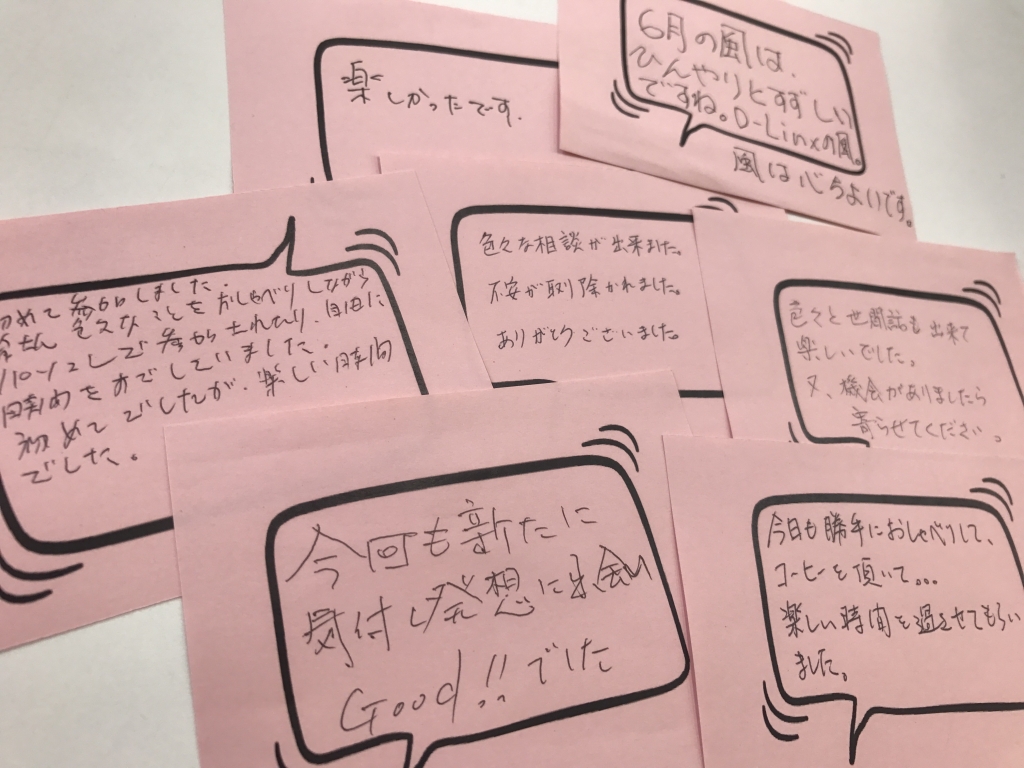 楽しかったです.
6月の風は、
ひんやりとすずしい
ですね。D-Linxの風。
風は心ちよいです。
初めて参加しました.
皆さん 色々なことをおしゃべりしながら
して 参加されたり、自由に
初めてでしたが、楽しい時間
でした。
色々な相談が出来ました。
不安が取り除かれました。
ありがとうございました。
色々と世間話も出来て
楽しいでした。
又、機会がありましたら
寄らせてください。
今回も新たに
気付き発想に出会い
Good!!でした
今日も勝手におしゃべりして、
コーヒーを頂いて...
楽しい時間を過させてもらい
ました。